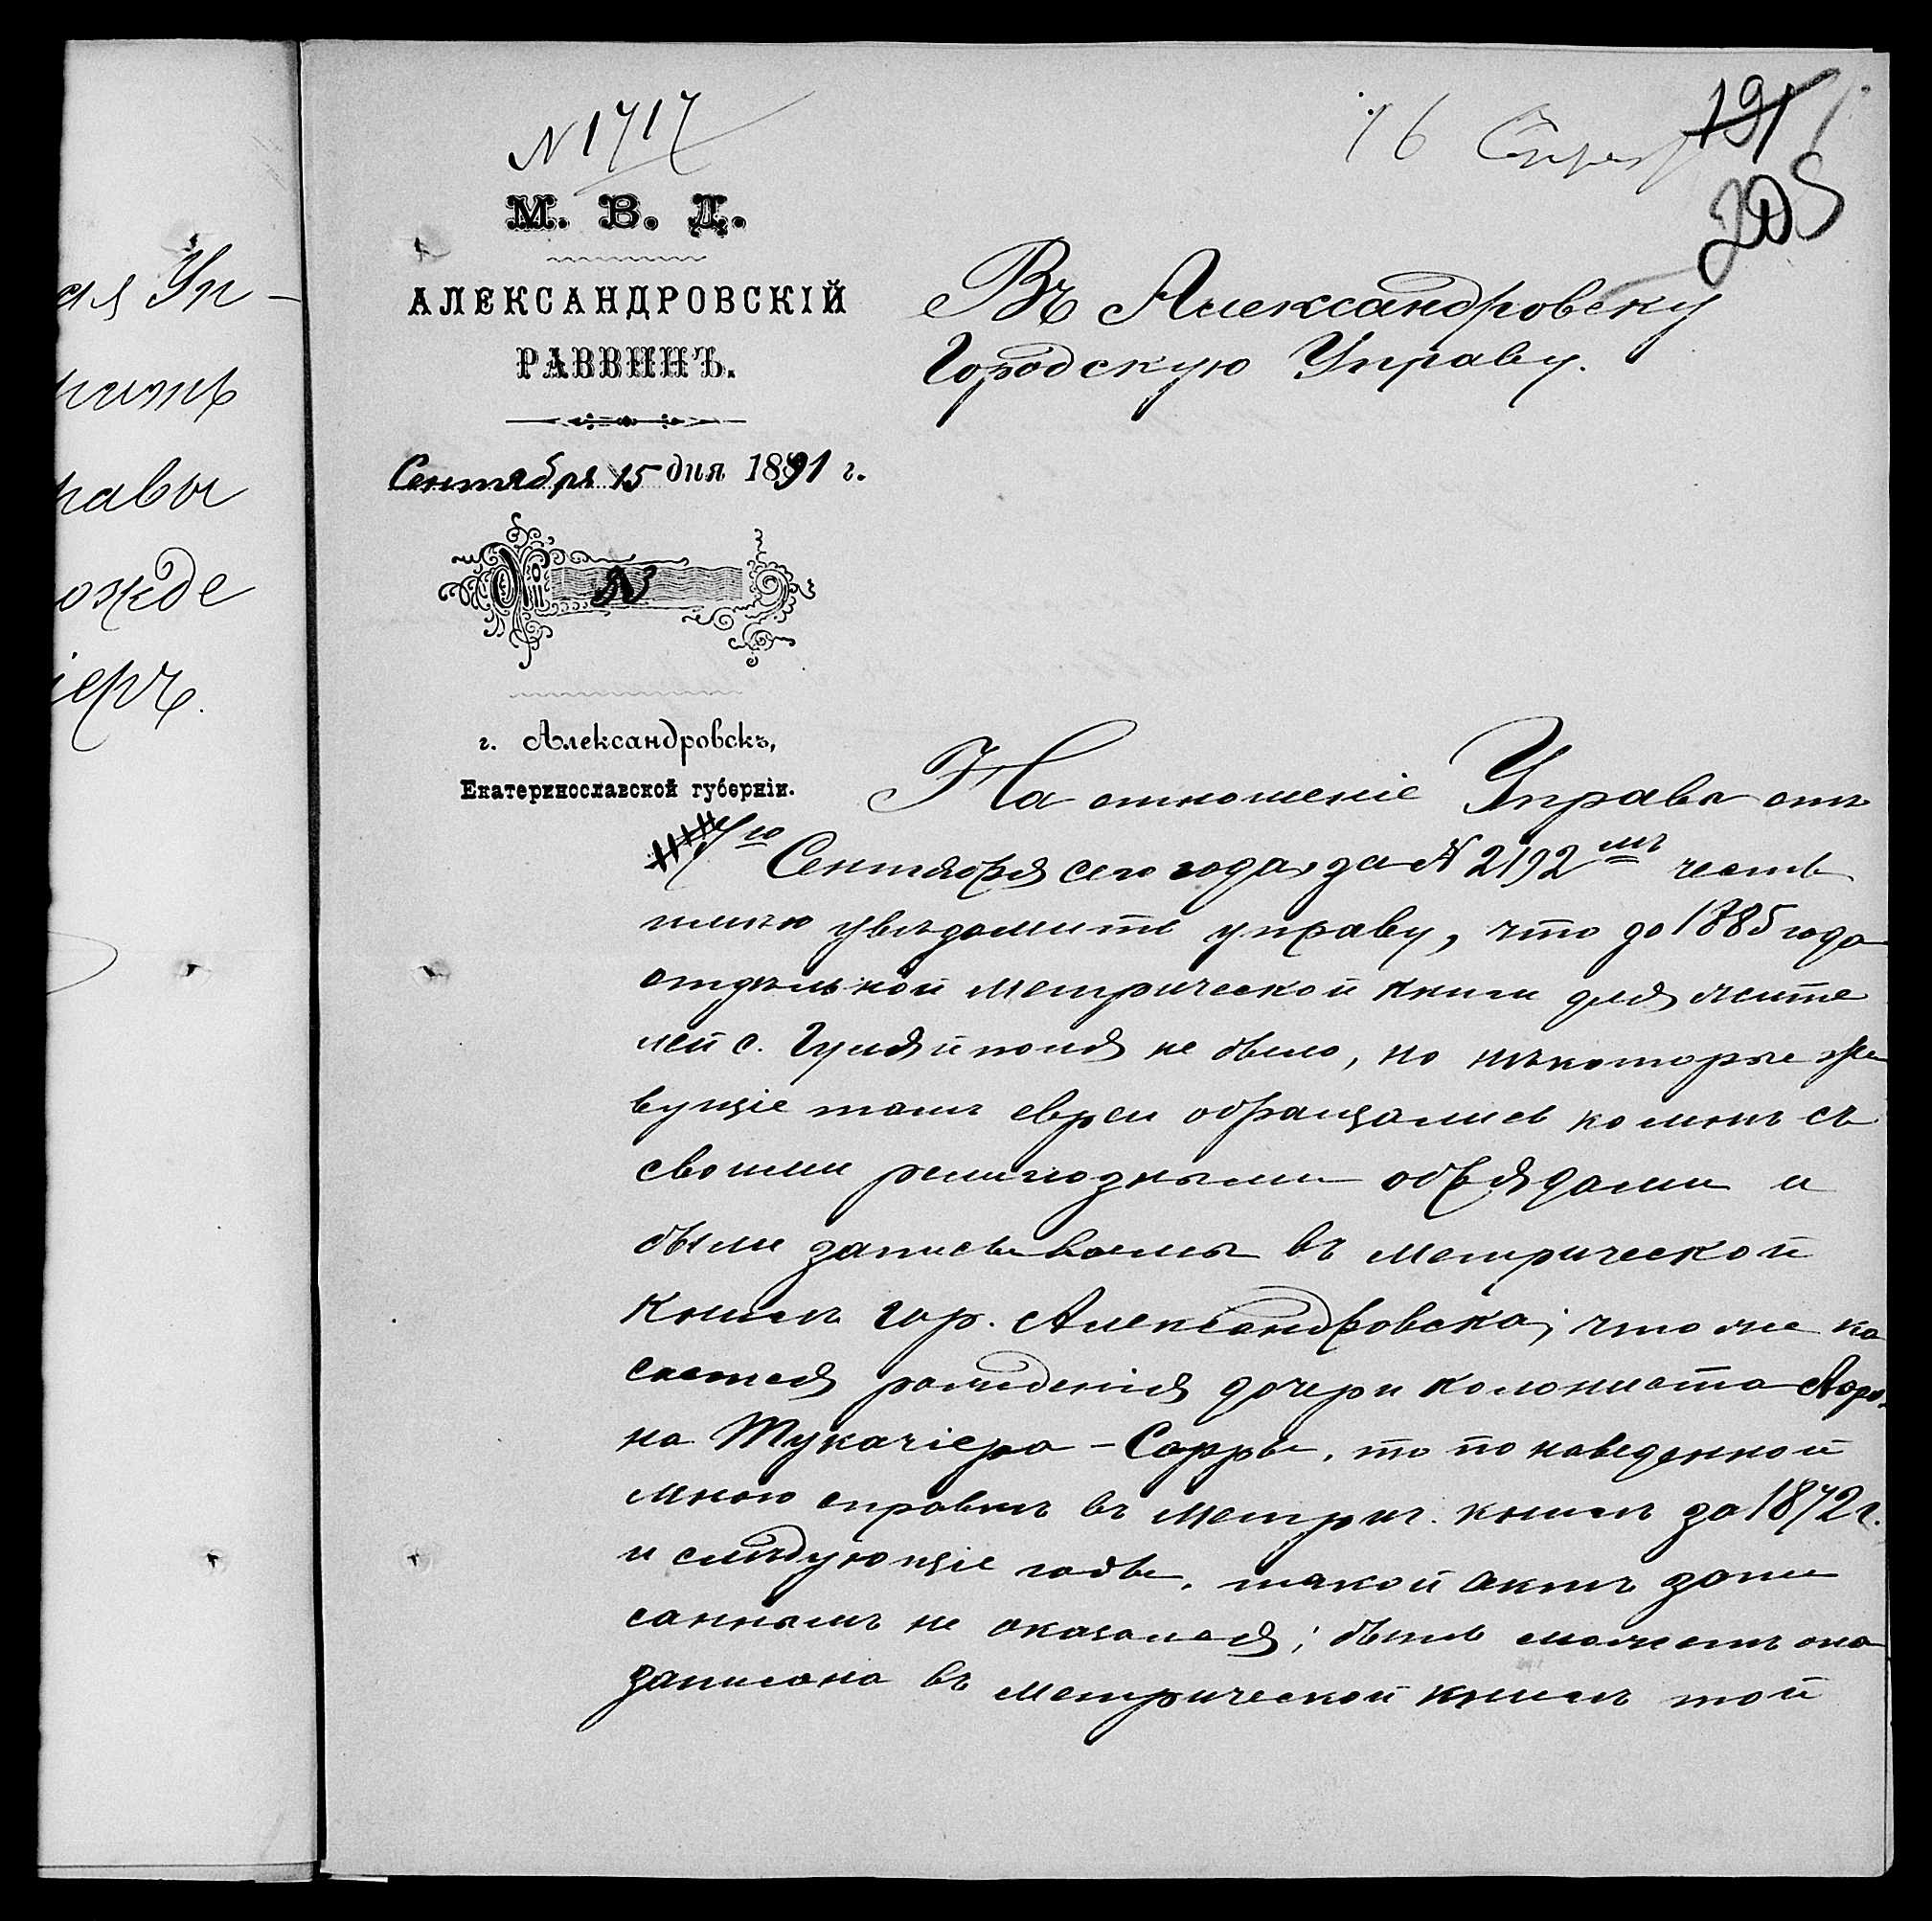 N 1717
16
191
205
М. В. Д.
АЛЕКСАНДРОВСКІЙ
РАВВИНЪ.
Сентября 15 дня 1891 г.
№
N
г. Александровскъ,
Екатеринославской губерніи.
Въ Александровску
Городскую Управу.
На отношеніе Управы отъ
7го Сентября сего года за N 2192мъ честь
имѣю увѣдомить управу, что до 1885 года
отдѣльной метрической книги для жите
лей с. Гуляйполя не было, но нѣкоторые жи
вущіе тамъ евреи обращались ко мнѣ съ
своими религіозными обрядами и
были записываемы въ метрической
книгѣ гор. Александровска; что же ка
сается рожденія дочери колониста Ааро-
на Мукачіера - Сарры, то по наведенной
мною справкѣ въ метрич. книгѣ за 1872 г.
и слѣдующіе годы, такой актъ запи
саннымъ не оказался; быть можетъ она
записана въ метрической книгѣ той
ая Уп-
равы
ожде
іеръ.